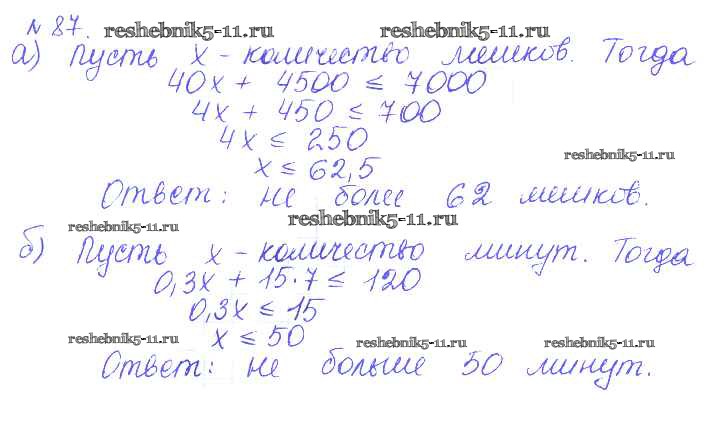 № 87. reshebnik5-11.ru reshebnik5-11.ru
а) Пусть x - количество мешков. Тогда
40x + 4500 ≤ 7000
4x + 450 ≤ 700
4x ≤ 250
x ≤ 62,5 reshebnik5-11.ru
Ответ: не более 62 мешков.
reshebnik5-11.ru reshebnik5-11.ru
б) Пусть x - количество минут. Тогда
0,3x + 15·7 ≤ 120
0,3x ≤ 15
x ≤ 50
reshebnik5-11.ru reshebnik5-11.ru reshebnik5-11.ru
Ответ: не больше 50 минут.